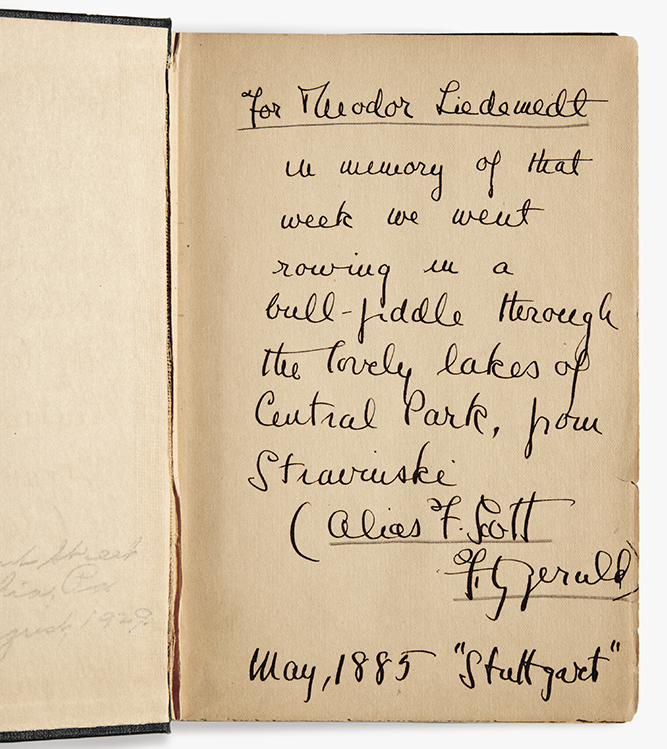 Street
Pa
1929
For Theodor Liedemedt
in memory of that
week we went
rowing in a
bull-fiddle through
the lovely lakes of
Central Park, from
Stravinski
(alias F. Scott
Fitzgerald)
May, 1885 "Stuttgart"